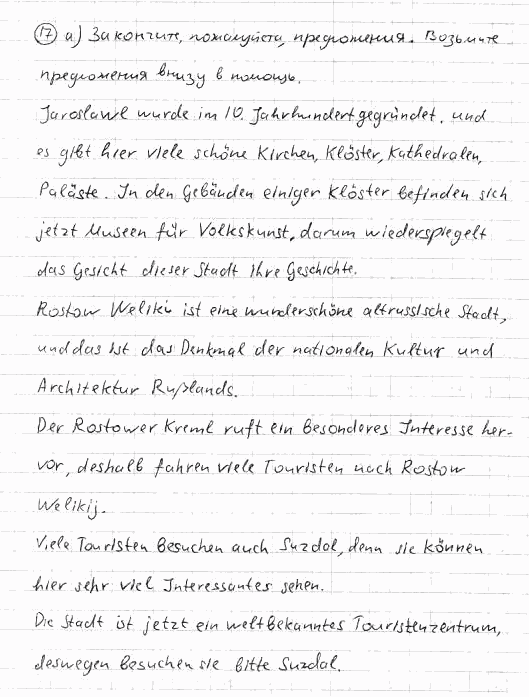 17 а) Закончите, пожалуйста, предложения. Возьмите
предложения внизу в помощь.
Jaroslawl wurde im 10. Jahrhundert gegründet, und
es gibt hier viele schöne Kirchen, Klöster, Kathedralen,
Paläste. In den Gebäuden einiger Klöster befinden sich
jetzt Museen für Volkskunst, darum wiederspiegelt
das Gesicht dieser Stadt ihre Geschichte.
Rostow Weliki ist eine wunderschöne altrussische Stadt,
und das ist das Denkmal der nationalen Kultur und
Architektur Rußlands.
Der Rostower Kreml ruft ein besonderes Interesse her-
vor, deshalb fahren viele Touristen nach Rostow
Welikij.
Viele Touristen besuchen auch Suzdal, denn sie können
hier sehr viel Interessantes sehen.
Die Stadt ist jetzt ein weltbekanntes Touristenzentrum,
deswegen besuchen sie bitte Suzdal.